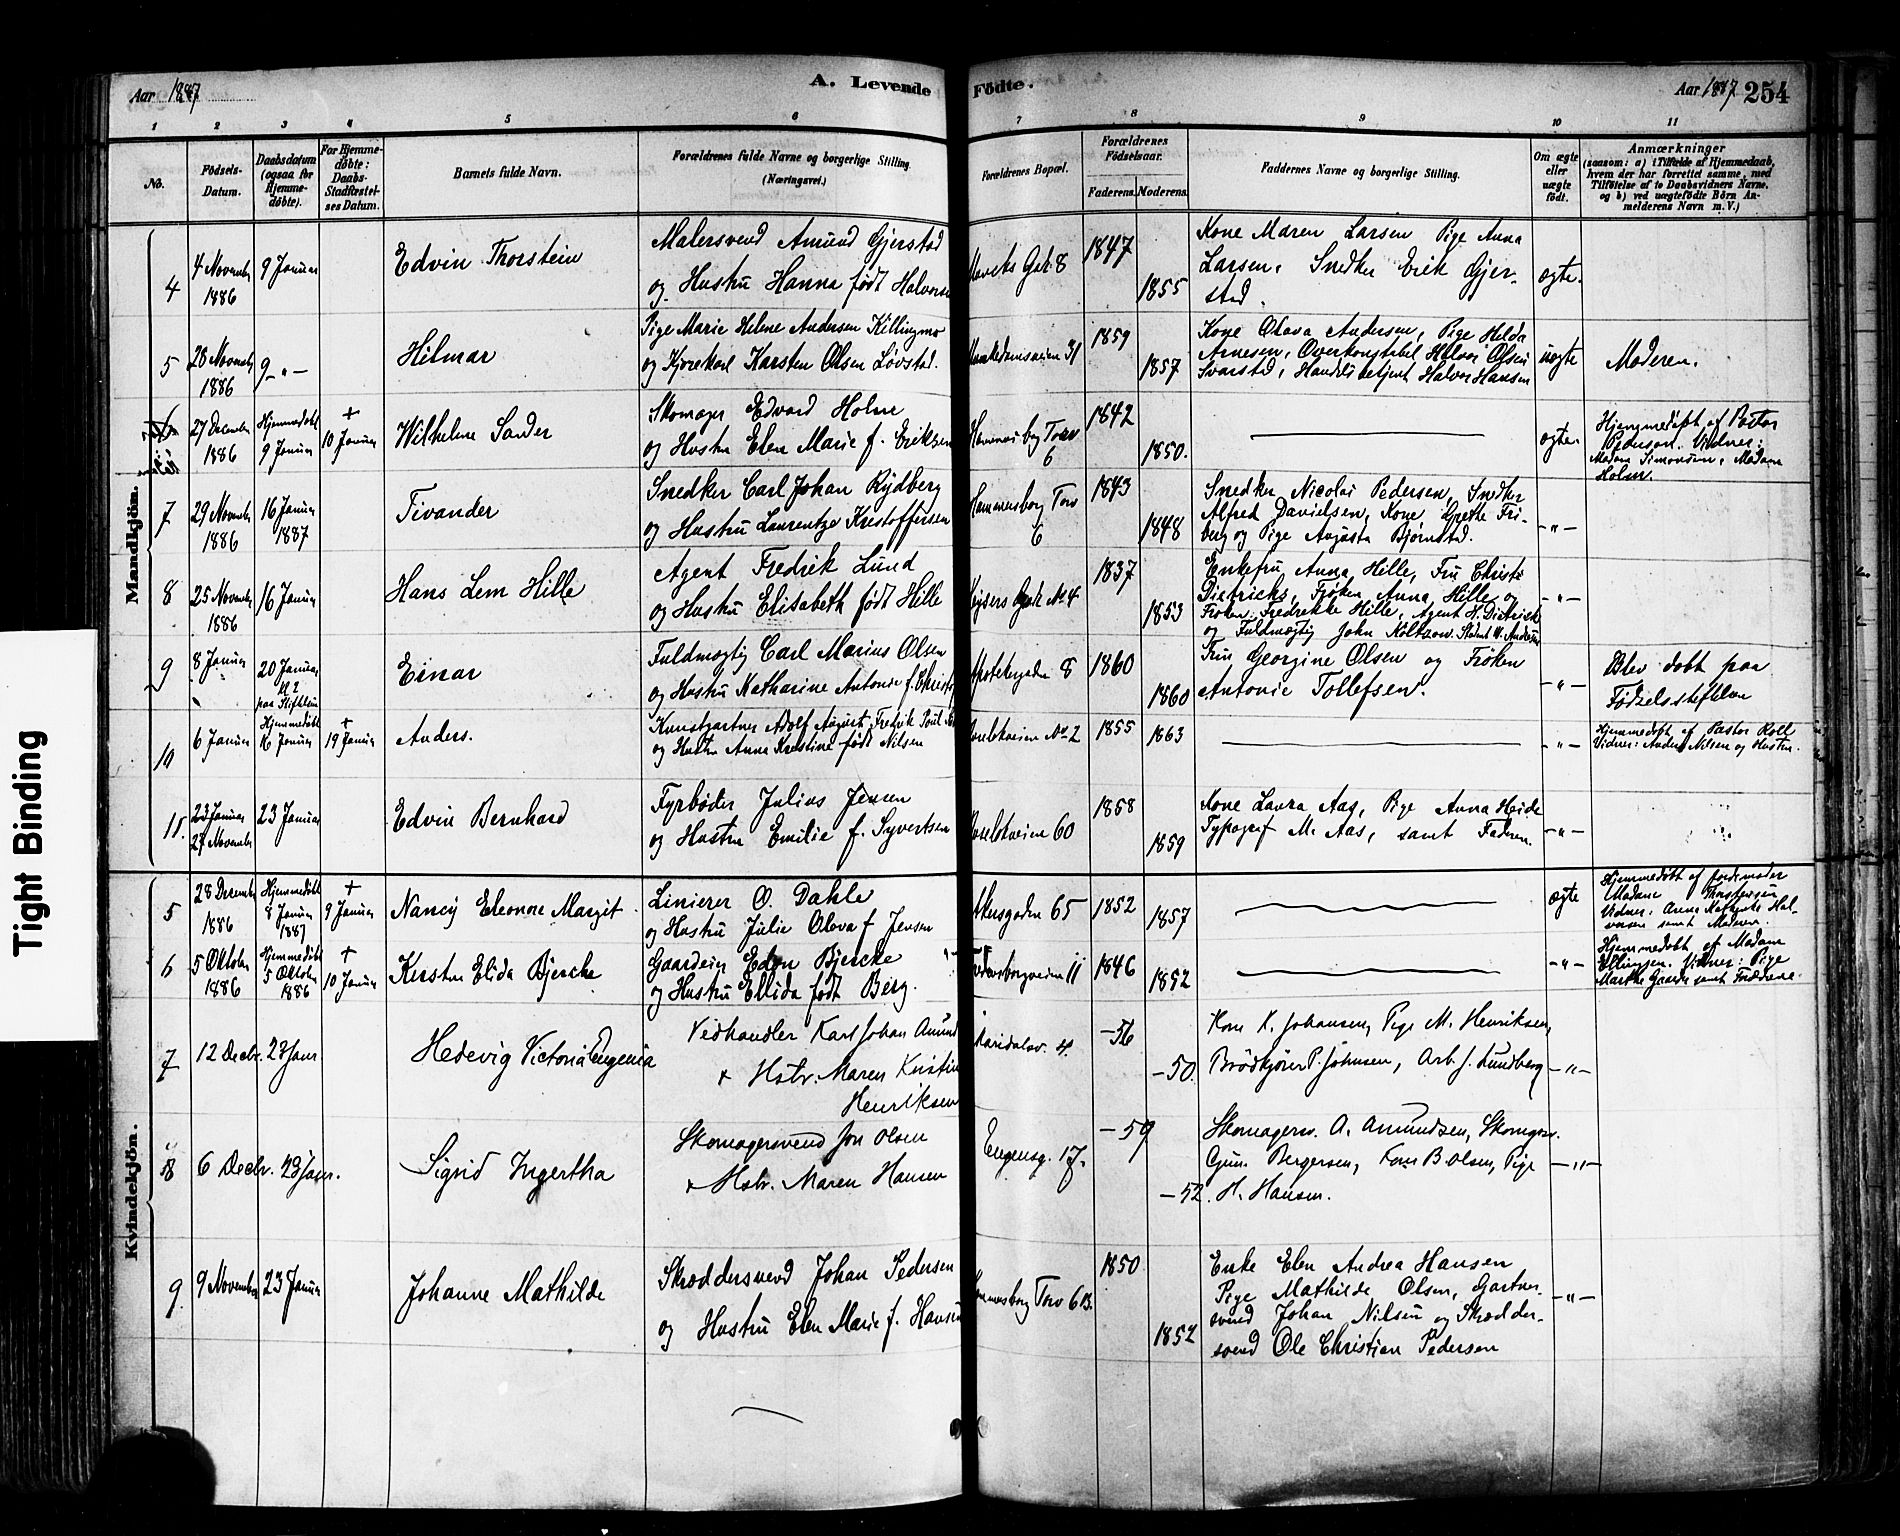 Aar 1887
A. Levende Fødte.
Aar 1887 254
1 2 3 4 5 6 7 8 9 10 11
No.
Fødsels-Datum.
Daabsdatum (ogsaa for Hjemme-døbte).
For Hjemme-døbte: Daabs-Stadfæstel-ses Datum.
Barnets fulde Navn.
Forældrenes fulde Navne og borgerlige Stilling. (Næringsvei.)
Forældrenes Bopæl.
Forældrenes Fødselsaar.
Faderens. Moderens.
Faddernes Navne og borgerlige Stilling.
Om ægte eller uægte født.
Anmærkninger
(saasom: a) i Tilfælde af Hjemmedaab, hvem der har forrettet samme, med Tilføielse af to Daabsvidners Navne, og b) ved uægtefødte Børn Anmelderens Navn m. V.)
Mandkjön.
4
4 November 1886
9 Januar
Edvin Thorstein
Malersvend Amund Gjerstad
og Hustru Hanna født Halvors
Gade 8
1847
1855
Kone Maren Larsen Pige Anna
Larsen, Snedker Erik Gjer-
stad.
ægte.
5
28 November 1886
9 - " -
Hilmar
Pige Marie Helene Andersen Killingmo
og Kjørekarl Karsten Olsen Løvstad.
31
1859
1857
Kone Olava Andersen, Pige Hilda
Arnesen, Overkonstabel Halvor Olsen
Svarstad, Handelsbetjent Halvor Hansen
uægte
Moderen.
6
27 December 1886
Hjemmedøbt 9 Januar
+ 10 Januar
Wilhelm Sander
Skomager Edvard Holm
og Hustru Elen Marie f. Eriksen
Hammersborg Torv 6
1842
1850.
ægte.
Hjemmedøbt af Pastor
Pedersen. Vidner:
Madam Simonsen, Madam
Holm.
7
29 November 1886
16 Januar 1887
Tivander
Snedker Carl Johan Rydberg
og Hustru Laurentze Kristoffersen
Hammersborg Torv 6
1843
1848
Snedker Nicolai Pedersen, Snedker
Alfred Davidsen, Kone Grethe Fri-
berg og Pige Augusta Bjørnstad.
- " -
8
25 November 1886
16 Januar
Hans Lem Hille
Agent Fredrik Lund
og Hustru Elisabeth født Hille
Keysers Gade No 4
1837
1853
Enkefru Anna Hille, Fru Christi
Dietrichs, Frøken Anna Hille og
Frøken Fredrikke Hille, Agent H. Dietrichs
og Fuldmægtig John Koltzow. Student W. Andersen
- " -
9
8 Januar
20 Januar
paa Stiftelsen
Einar
Fuldmægtig Carl Marius Olsen
og Hustru Katharine Antonie f. Christ
Apothekergaden 8
1860
1860
Fru Georgine Olsen og Frøken
Antonie Tollefsen.
- " -
Blev døbt paa
Fødselsstiftelsen
10
6 Januar
Hjemmedøbt 16 Januar
+ 19 Januar
Anders.
Kunstgartner Adolf August Fredrik Poul
og Hustru Anna Kristine født Nilsen
No 2
1855
1863
- " -
Hjemmedøbt af Pastor Roll
Vidner: Anders Nilsen og Hustru.
11.
23 Januar
27 November
23 Januar
Edvin Bernhard
Fyrbøder Julius Jensen
og Hustru Emilie f. Syvertsen
60
1858
1859
Kone Laura Aas, Pige Anna Heide
Typograf M. Aas, samt Faderen.
- " -
Kvindekjön.
5
28 December 1886
Hjemmedøbt 8 Januar 1887
+ 9 Januar
Nancy Eleonore Margit
Linierer O. Dahle
og Hustru Julie Olava f Jensen
Akersgaden 65
1852
1857
ægte
Hjemmedøbt af Jordemoder
Madame Thorstensen
Vidner: Anna Mathea Hal-
vorsen samt Moderen.
6
5 Oktober 1886
Hjemmedøbt 5 Oktober 1886
+ 10 Januar
Kirsten Elida Bjercke
Gaardeier Edon Bjercke
og Hustru Ellida født Berg.
11
1846
1852
- " -
Hjemmedøbt af Madame
Ellingsen. Vidner: Pige
Marthe Gaarder samt Forældrene
7
12 Decbr.
23 Janr.
Hedevig Victoria Eugenia
Vedhandler Karl Johan Amund
& Hstr. Maren Kristin
Henriksen
Maridalsv. 4.
- 56
- 50.
Kone K. Johansen, Pige M. Henriksen,
Brødkjører P. Johnsen, Arb. J. Lundberg
- " -
8
6 Decbr.
23 Janr.
Sigrid Ingertha
Skomagersvend Jon Olsen
& Hstr. Maren Hansen
Eugensg. 17.
- 59
- 52.
Skomagersv. A. Amundsen, Skomgsv.
Gun. Bergersen, Kone B. Olsen, Pige
H. Hansen.
- " -
9
9 November
23 Januar
Johanne Mathilde
Skræddersvend Johan Pedersen
og Hustru Elen Marie f. Hansen
Hammersborg Torv 6 B.
1850
1852
Enke Elen Andrea Hansen
Pige Mathilde Olsen, Gartner-
svend Johan Nilsen og Skrædder-
svend Ole Christian Pedersen
- " -
Tight Binding